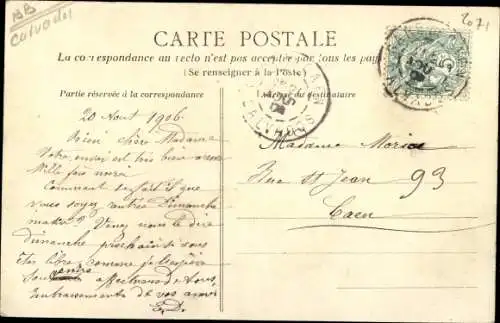 BB
Calvados
2071
CARTE POSTALE
La correspondance au recto n'est pas acceptée par tous les pays
(Se renseigner à la Poste)
Partie réservée à la correspondance
Adresse du destinataire
CAEN
CALVADOS
20 Aout 1906
Bien chère Madame
Votre envoi est très bien
Mille fois merci
Comment se fait il que
vous soyez
Venez nous le dire
dimanche prochain si vous
êtes libre comme je l'espère
affectueux de tous,
de vos amis
E.D.
Madame Morice
Rue St Jean 93
Caen